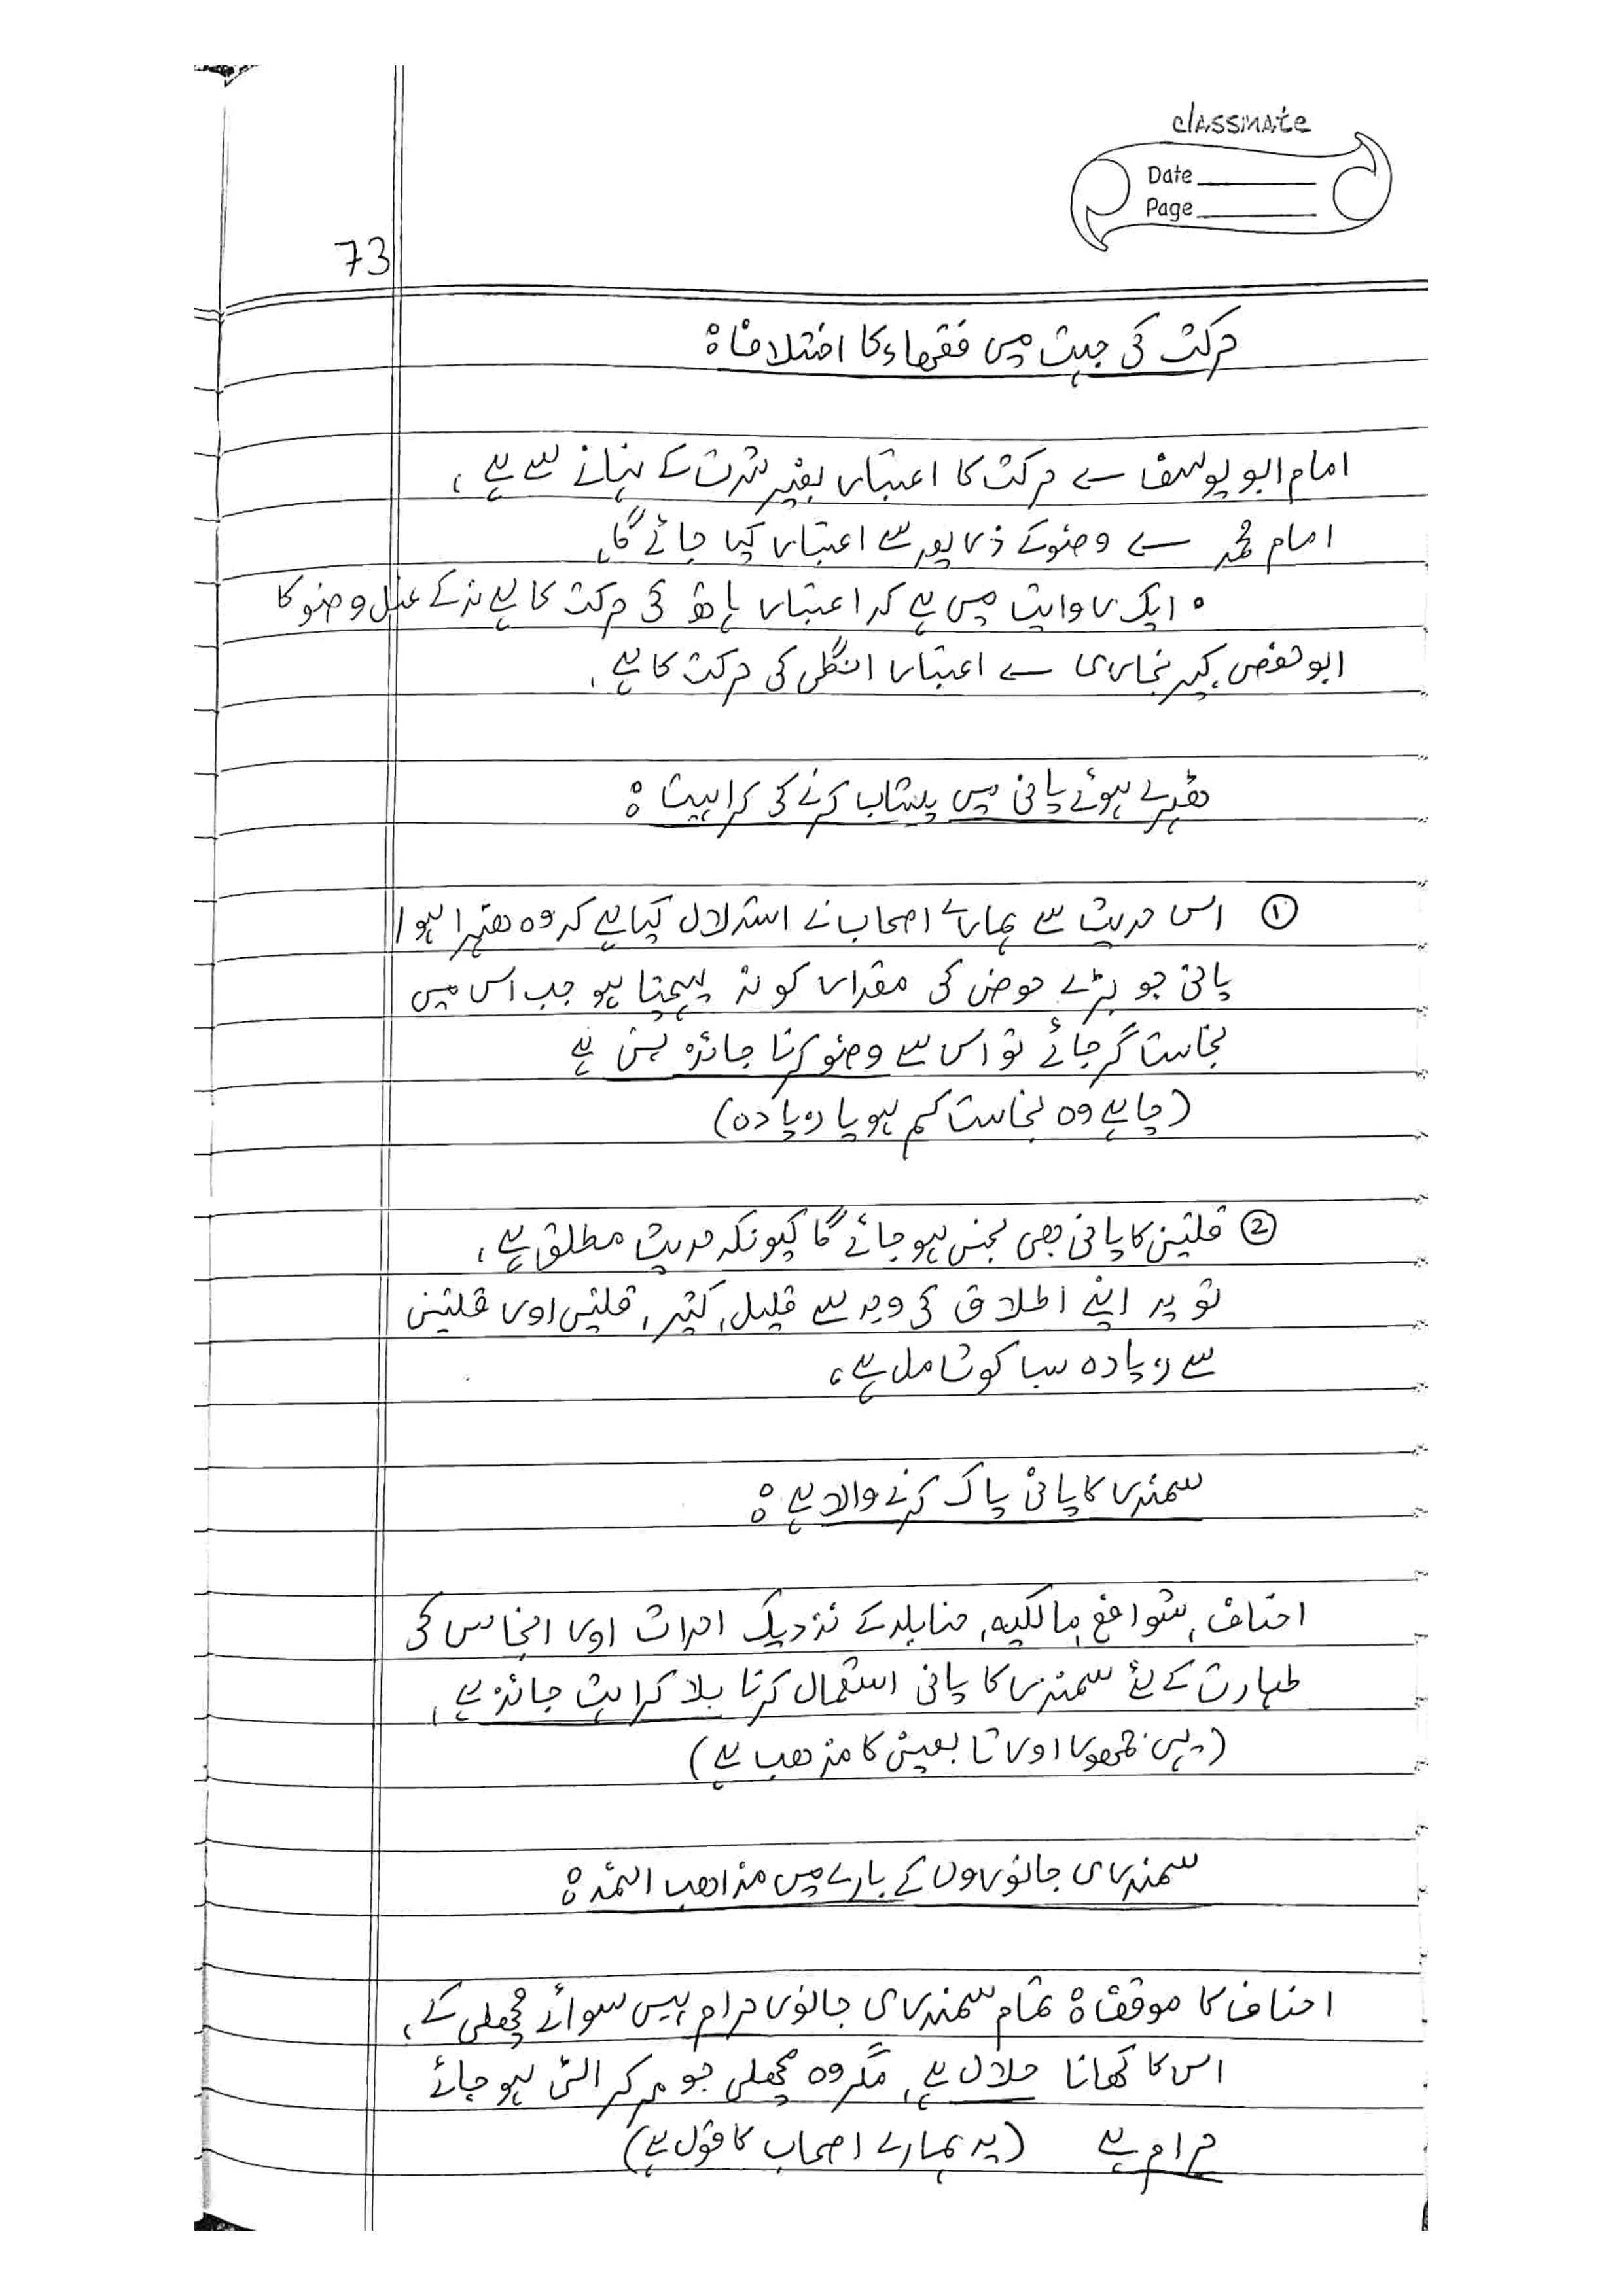 classmate
Date
Page
73
حرکت کی جہت میں فقہاء کا اختلاف:
امام ابو یوسف سے حرکت کا اعتبار بغیر شدت کے نہانے سے ہے،
امام محمد سے وضو کے ذریعہ سے اعتبار کیا جائے گا،
• ایک روایت میں ہے کہ اعتبار ہاتھ کی حرکت کا ہے نہ کے غسل وضو کا
ابو حفص کبیر بخاری سے اعتبار انگلی کی حرکت کا ہے،
ٹھہرے ہوئے پانی میں پیشاب کرنے کی کراہیت:
① اس حدیث سے ہمارے اصحاب نے استدلال کیا ہے کہ وہ ٹھہرا ہوا
پانی جو بڑے حوض کی مقدار کو نہ پہنچتا ہو جب اس میں
نجاست گر جائے تو اس سے وضو کرنا جائز نہیں ہے
(چاہے وہ نجاست کم ہو یا زیادہ)
② قلتین کا پانی بھی نجس ہو جائے گا کیونکہ حدیث مطلق ہے،
تو یہ اپنے اطلاق کی وجہ سے قلیل، کثیر، قلتین اور قلتین
سے زیادہ سب کو شامل ہے،
سمندر کا پانی پاک کرنے والا ہے:
احناف، شوافع، مالکیہ، حنابلہ کے نزدیک احداث اور انجاس کی
طہارت کے لئے سمندر کا پانی استعمال کرنا بلا کراہت جائز ہے،
(یہی جمہور اور تابعین کا مذھب ہے)
سمندری جانوروں کے بارے میں مذاھب ائمہ:
احناف کا موقف: تمام سمندری جانور حرام ہیں سوائے مچھلی کے،
اس کا کھانا حلال ہے، مگر وہ مچھلی جو مر کر الٹی ہو جائے
حرام ہے (یہ ہمارے اصحاب کا قول ہے)